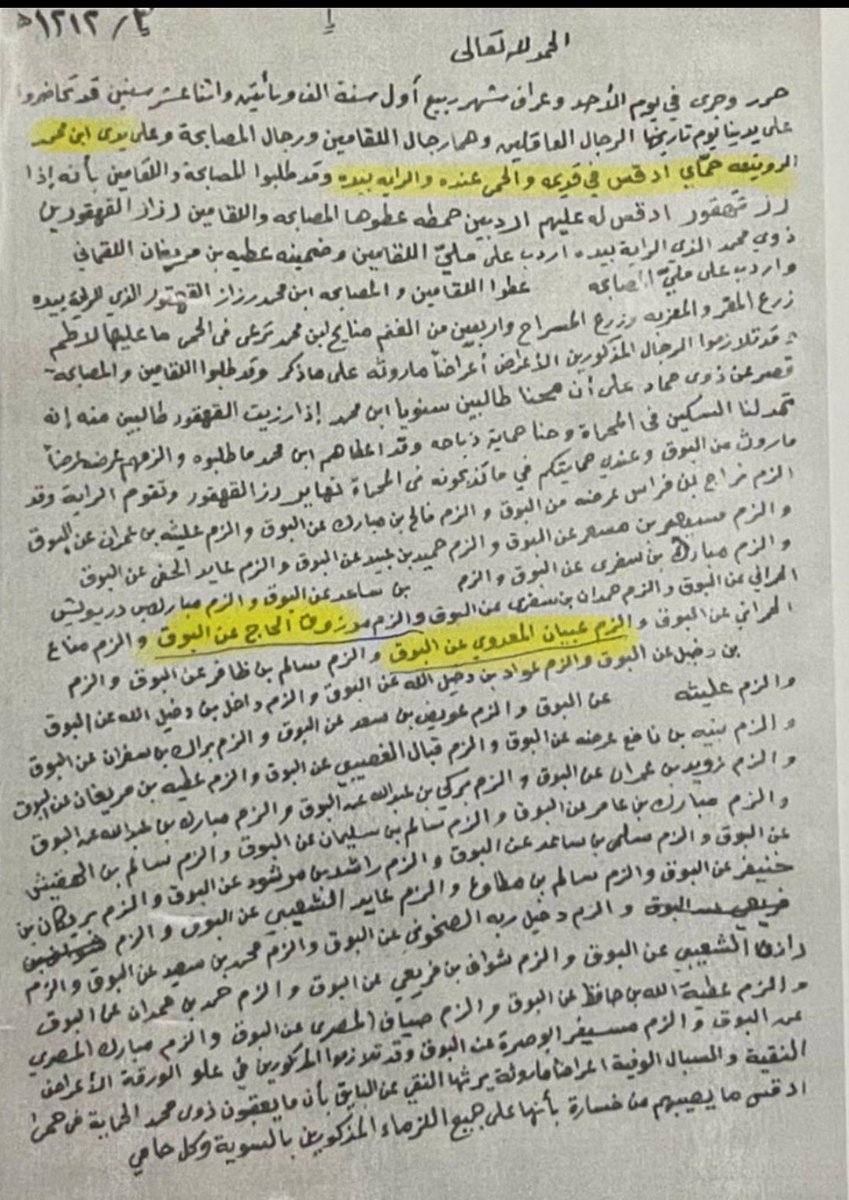 ٣/ ١٢١٢هـ
الحمد لله تعالى
حرر وجرى في يوم الأحد وعراف شهر ربيع أول سنة الف ومأتين واثنا عشر سنين قد تحاضروا
على يدينا يوم تاريخها الرجال العاقلين وهما رجال اللقامين ورجال المصابحة وعلى يدي ابن محمد
الروينعه حمّاي ادقس في قديمه والحمى عنده والرايه بيده وقد طلبوا المصابحة واللقامين بأنه إذا
رز القهقور ادقس له عليهم اردبين حمطه عطوها المصابحه واللقامين رزاز القهقورين
ذوي محمد الذي الراية بيده اردب على مليّ اللقامين وضمينه عطيه بن مريغان اللقماني
واردب على مليّ المصابحه عطوا اللقامين والمصابحه ابن محمد رزاز القهقور الذي الرايه بيده
زرع المقر والمعزبه وزرع المسراح واربعين من الغنم منايح لبن محمد ترعى في الحمى ما عليها لاطم
قد تلازموا الرجال المذكورين الأعراض أعراضاً ماروثه على ماذكر وقد طلبوا اللقامين والمصابحة
قصر عن ذوي حماد على أن صحنا طالبين سنويا ابن محمد إذا رزيت القهقور طالبين منه إنه
تمد لنا السكين في المحماة وحنا حماية ذباحه وقد اعطاهم ابن محمد ما طلبوه والزمهم عرضه عرضاً
ماروث من البوق وعندي حمايتكم في ما تذبحونه في المحماة نهاير رز القهقور وتقوم الراية وقد
الزم فراج بن فراس عرضه من البوق والزم فالح بن مبارك عن البوق والزم عليثه بن عمران عن البوق
والزم مسفر بن مسعر عن البوق والزم حميد بن عبيد عن البوق والزم عايد الحفى عن البوق
والزم مبارك بن سفرى عن البوق والزم بن ساعد عن البوق والزم مبارك بن درويش
الحراني عن البوق والزم همدان بن سفرى عن البوق والزم مرزوق الحاج عن البوق والزم مناع
الحراني عن البوق والزم عبيان المعدوي عن البوق والزم سالم بن ظافر عن البوق والزم
بن دخيل عن البوق والزم عواد بن دخيل الله عن البوق والزم داخل بن دخيل الله عن البوق
والزم عليثه عن البوق والزم عويض بن سعد عن البوق والزم براك بن سفران عن البوق
والزم بنيه بن نافع عرضه عن البوق والزم قبال الغصيبي عن البوق والزم عطيه بن مريغان عن البوق
والزم زويد بن عمران عن البوق والزم بركي بن عبدالله عن البوق والزم مبارك بن عبدالله عن البوق
والزم مبارك بن عامر عن البوق والزم سالم بن سليمان عن البوق والزم سالم بن الهقيش
عن البوق والزم سلمى بن ساعد عن البوق والزم راشد بن مرشود عن البوق والزم بريكان بن
حنيفر عن البوق والزم سالم بن مطاوع والزم عايد الشعيبي عن البوق والزم
فريحي عن البوق والزم دخيل ربه الصخوني عن البوق والزم محمد بن سعيد عن البوق والزم
رازق الشعيبي عن البوق والزم شواف بن فريعي عن البوق والزم حمد بن حمدان عن البوق
والزم عطية الله بن حافظ عن البوق والزم صياف المصري عن البوق والزم مبارك المصري
عن البوق والزم مسيفر ابو صرة عن البوق وقد تلازموا المذكورين في علو الورقة الأعراض
النقية والسبال الوفية اعراضا ماروثة يرثها النقي عن البايق بأن ما يعقبون ذوي محمد الحماية في حمى
ادقس ما يصيبهم من خسارة بأنها على جميع اللزماء المذكورين بالسوية وكل حامي